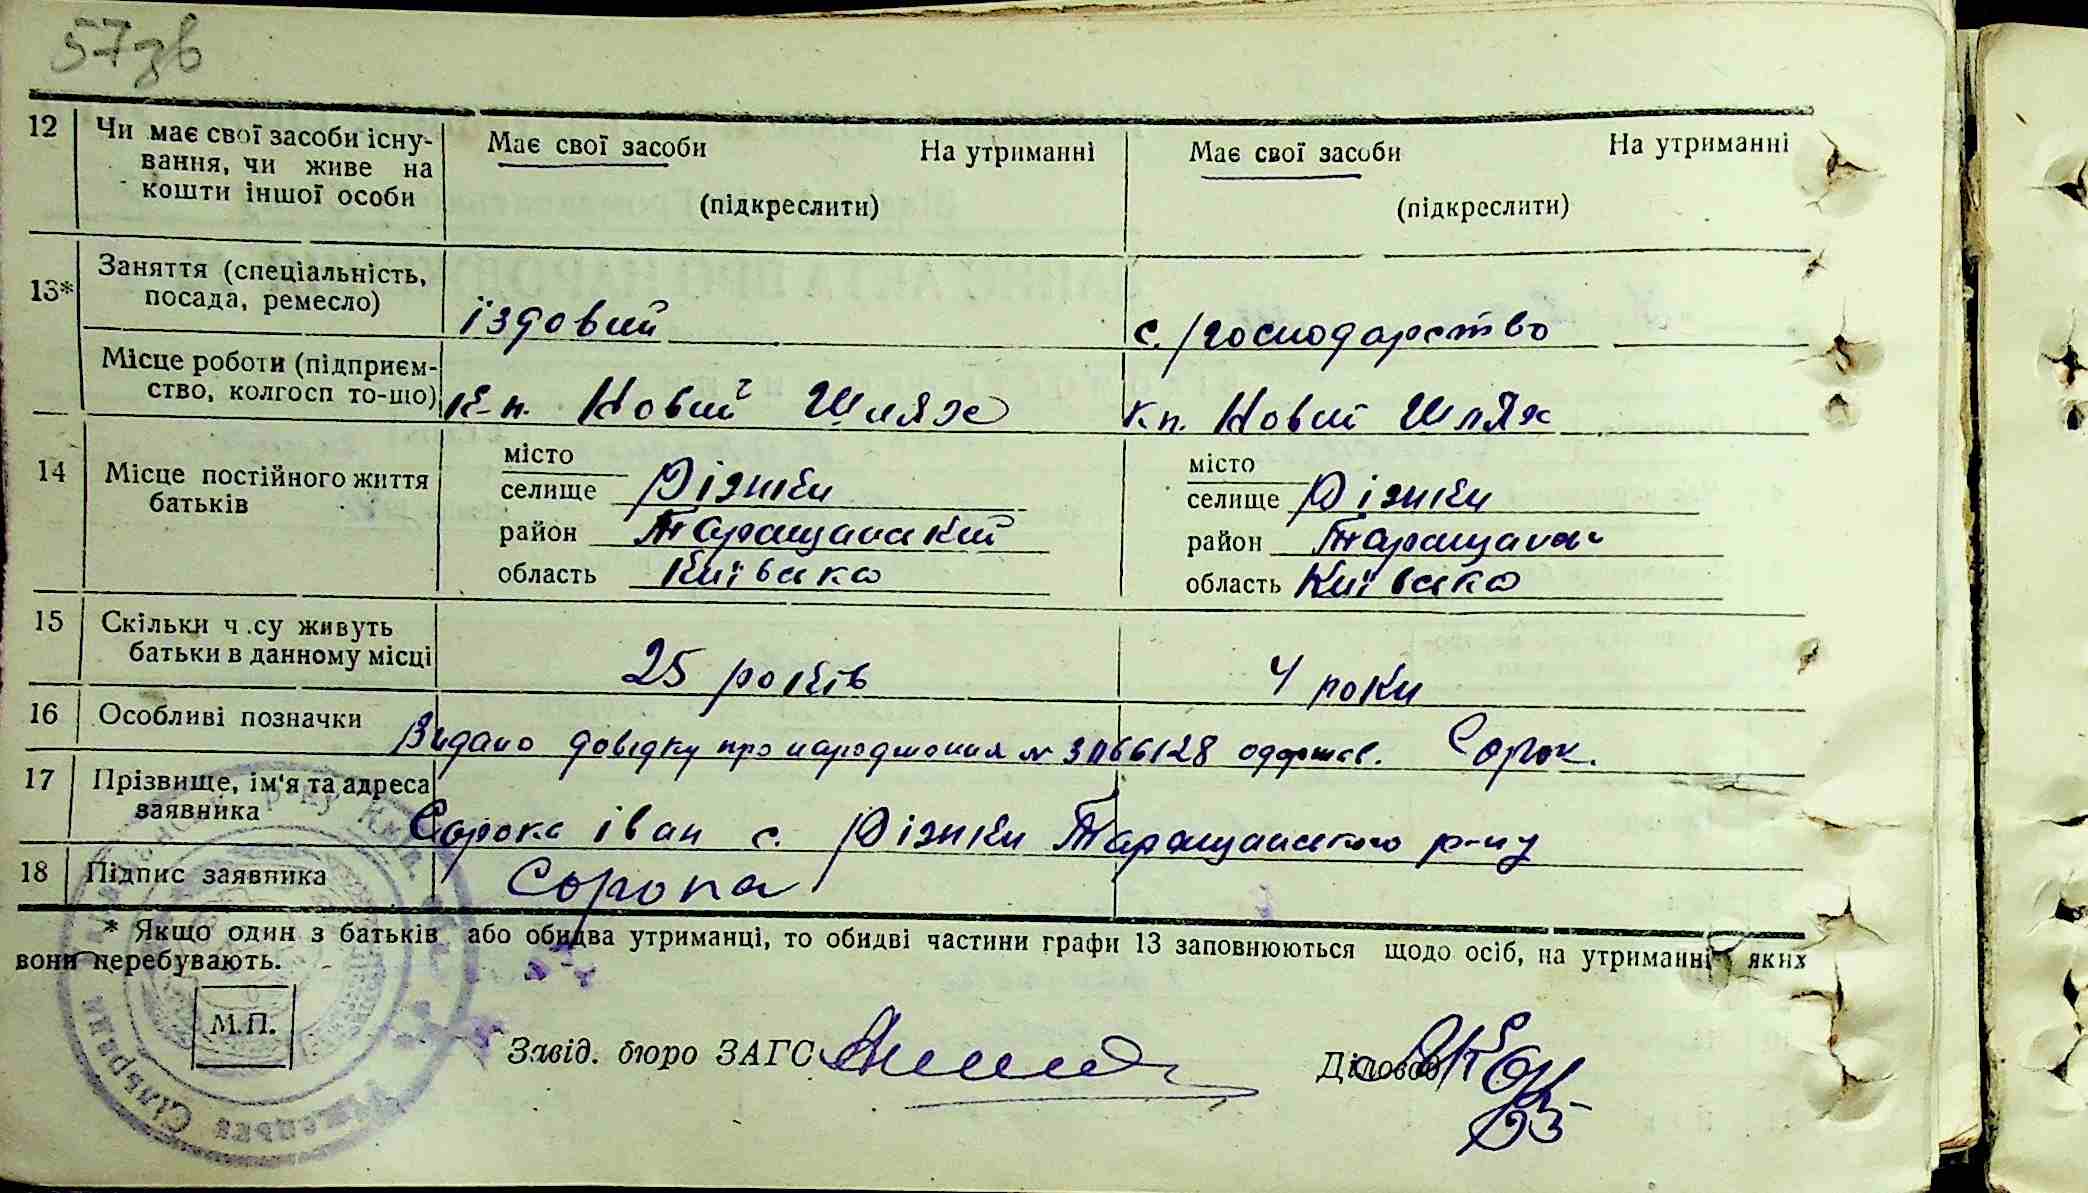 57зв
12 Чи має свої засоби існу-
вання, чи живе на
кошти іншої особи
Має свої засоби На утриманні
(підкреслити)
Має свої засоби На утриманні
(підкреслити)
13* Заняття (спеціальність,
посада, ремесло)
їздовий
с./господарство
Місце роботи (підприєм-
ство, колгосп то-що)
К-п. Новий Шлях
кп. Новий Шлях
14 Місце постійного життя
батьків
місто
селище Різки
район Таращанский
область Київська
місто
селище Різки
район
область Київська
15 Скільки ч.су живуть
батьки в данному місці
25 років
4 роки
16 Особливі позначки
Видано довідку про народження № одержав. Сорок.
17 Прізвище, ім'я та адреса
заявника
Сорока Іван с. Різки Таращанского р-ну
18 Підпис заявника
Сорока
* Якщо один з батьків або обидва утриманці, то обидві частини графи 13 заповнюються щодо осіб, на утриманні яких
вони перебувають.
М.П.
Завід. бюро ЗАГС
Діловод
Сільради